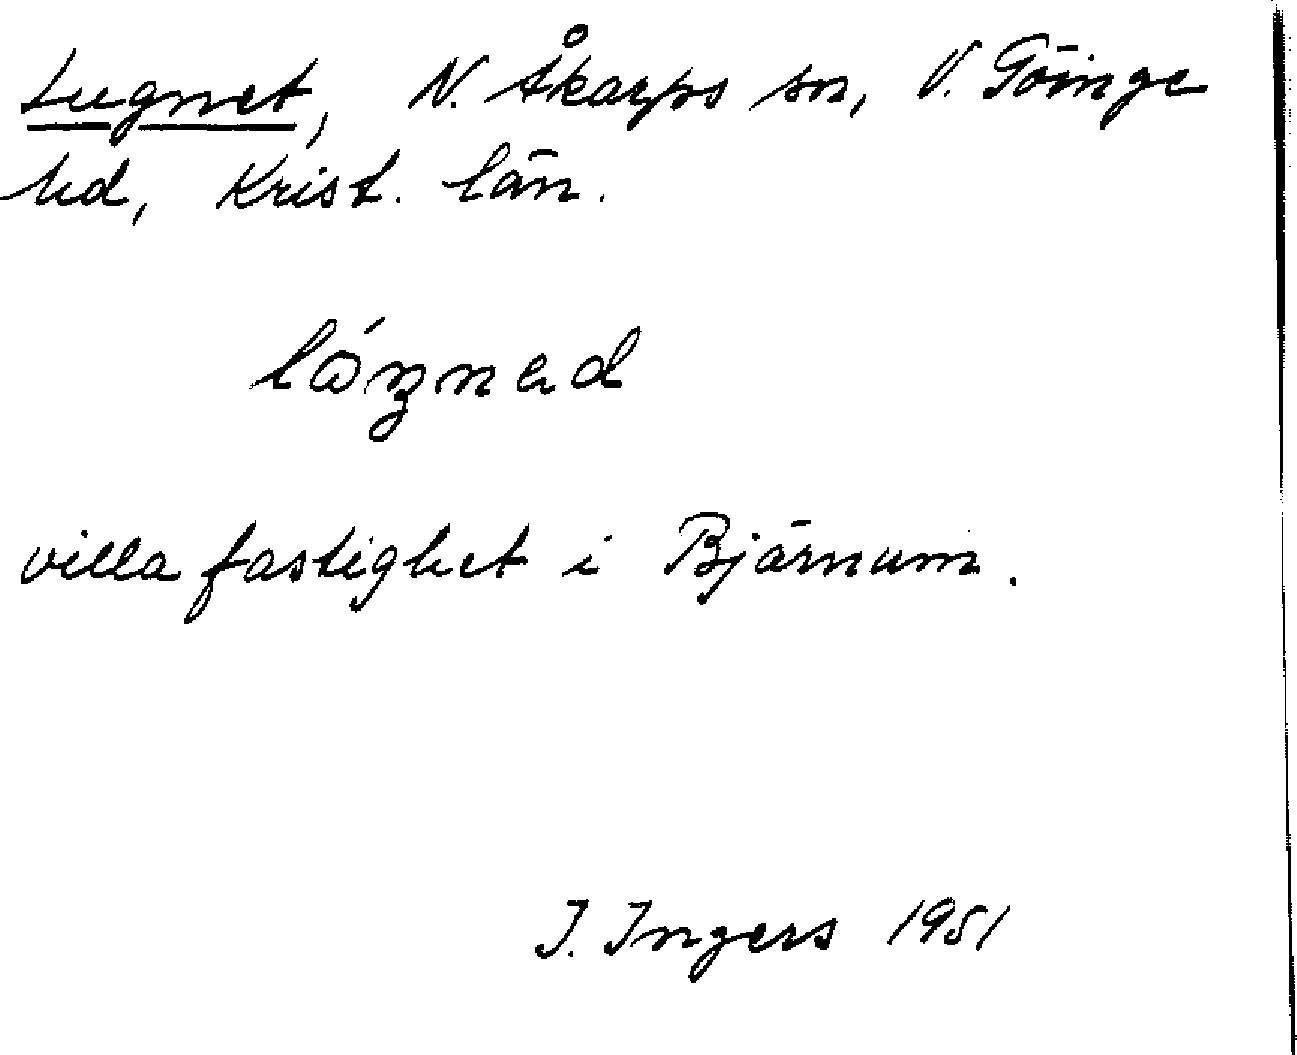 Lugnet, N. Åkarps sn, V. Göinge
hd, Krist. län.
villafastighet i Bjärnum.
I. Ingers 1951